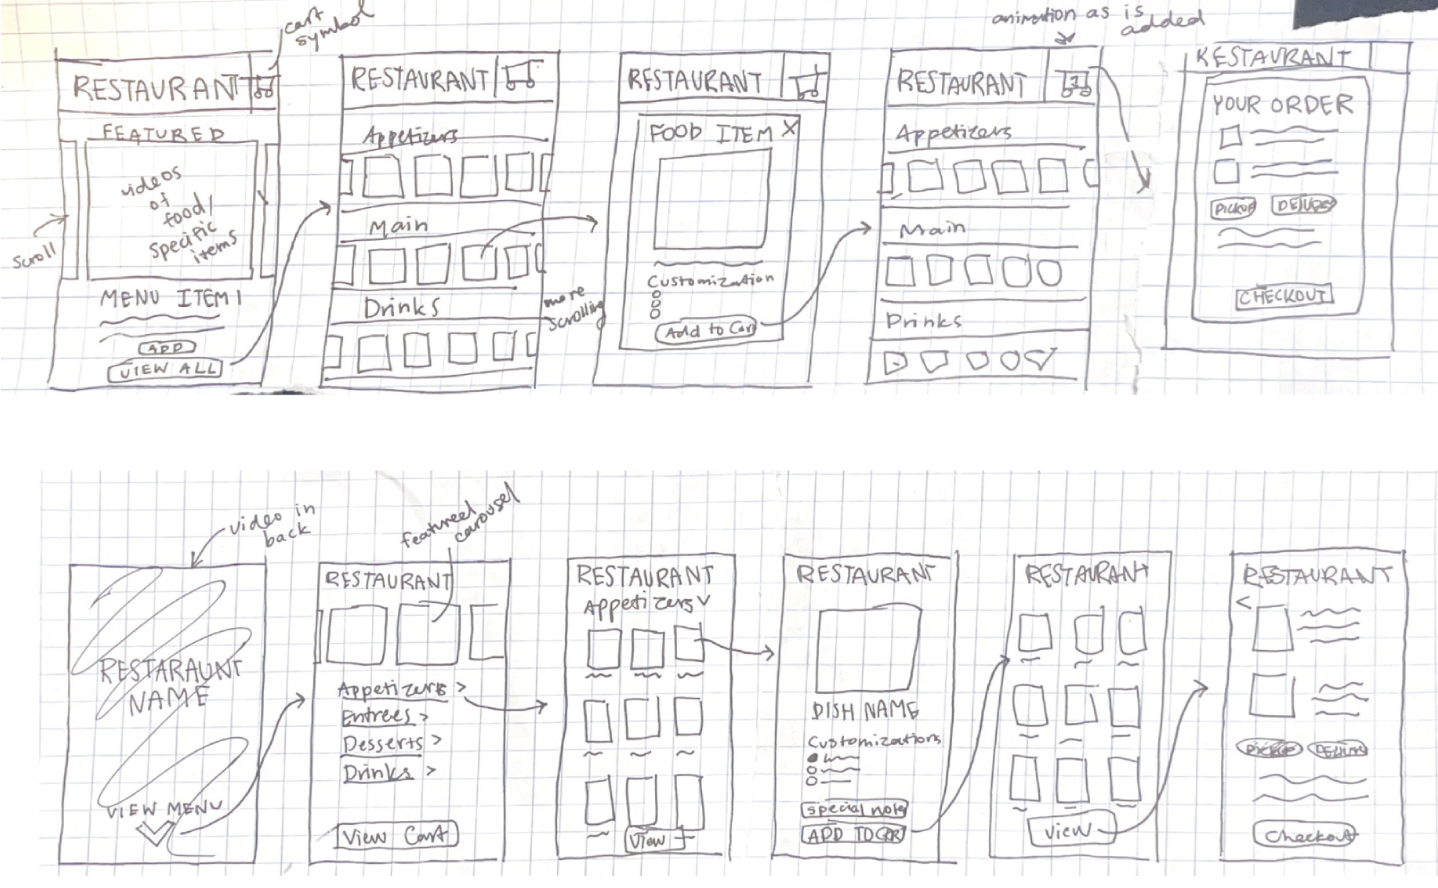 cart
symbol
RESTAURANT
FEATURED
videos
of
food/
specific
items
scroll
MENU ITEM 1
ADD
VIEW ALL
RESTAURANT
Appetizers
Main
Drinks
more
scrolling
RESTAURANT
FOOD ITEM X
Customization
Add to Cart
animation as is
added
RESTAURANT
Appetizers
Main
Drinks
RESTAURANT
YOUR ORDER
PICKUP
CHECKOUT
video in
back
RESTARAUNT
NAME
VIEW MENU
featured
carousel
RESTAURANT
Appetizers >
Entrees >
Desserts >
Drinks >
View Cart
RESTAURANT
Appetizers
View
RESTAURANT
DISH NAME
Customizations
special note
ADD TO CAR
RESTAURANT
View
RESTAURANT
<
PICKUP
Checkout